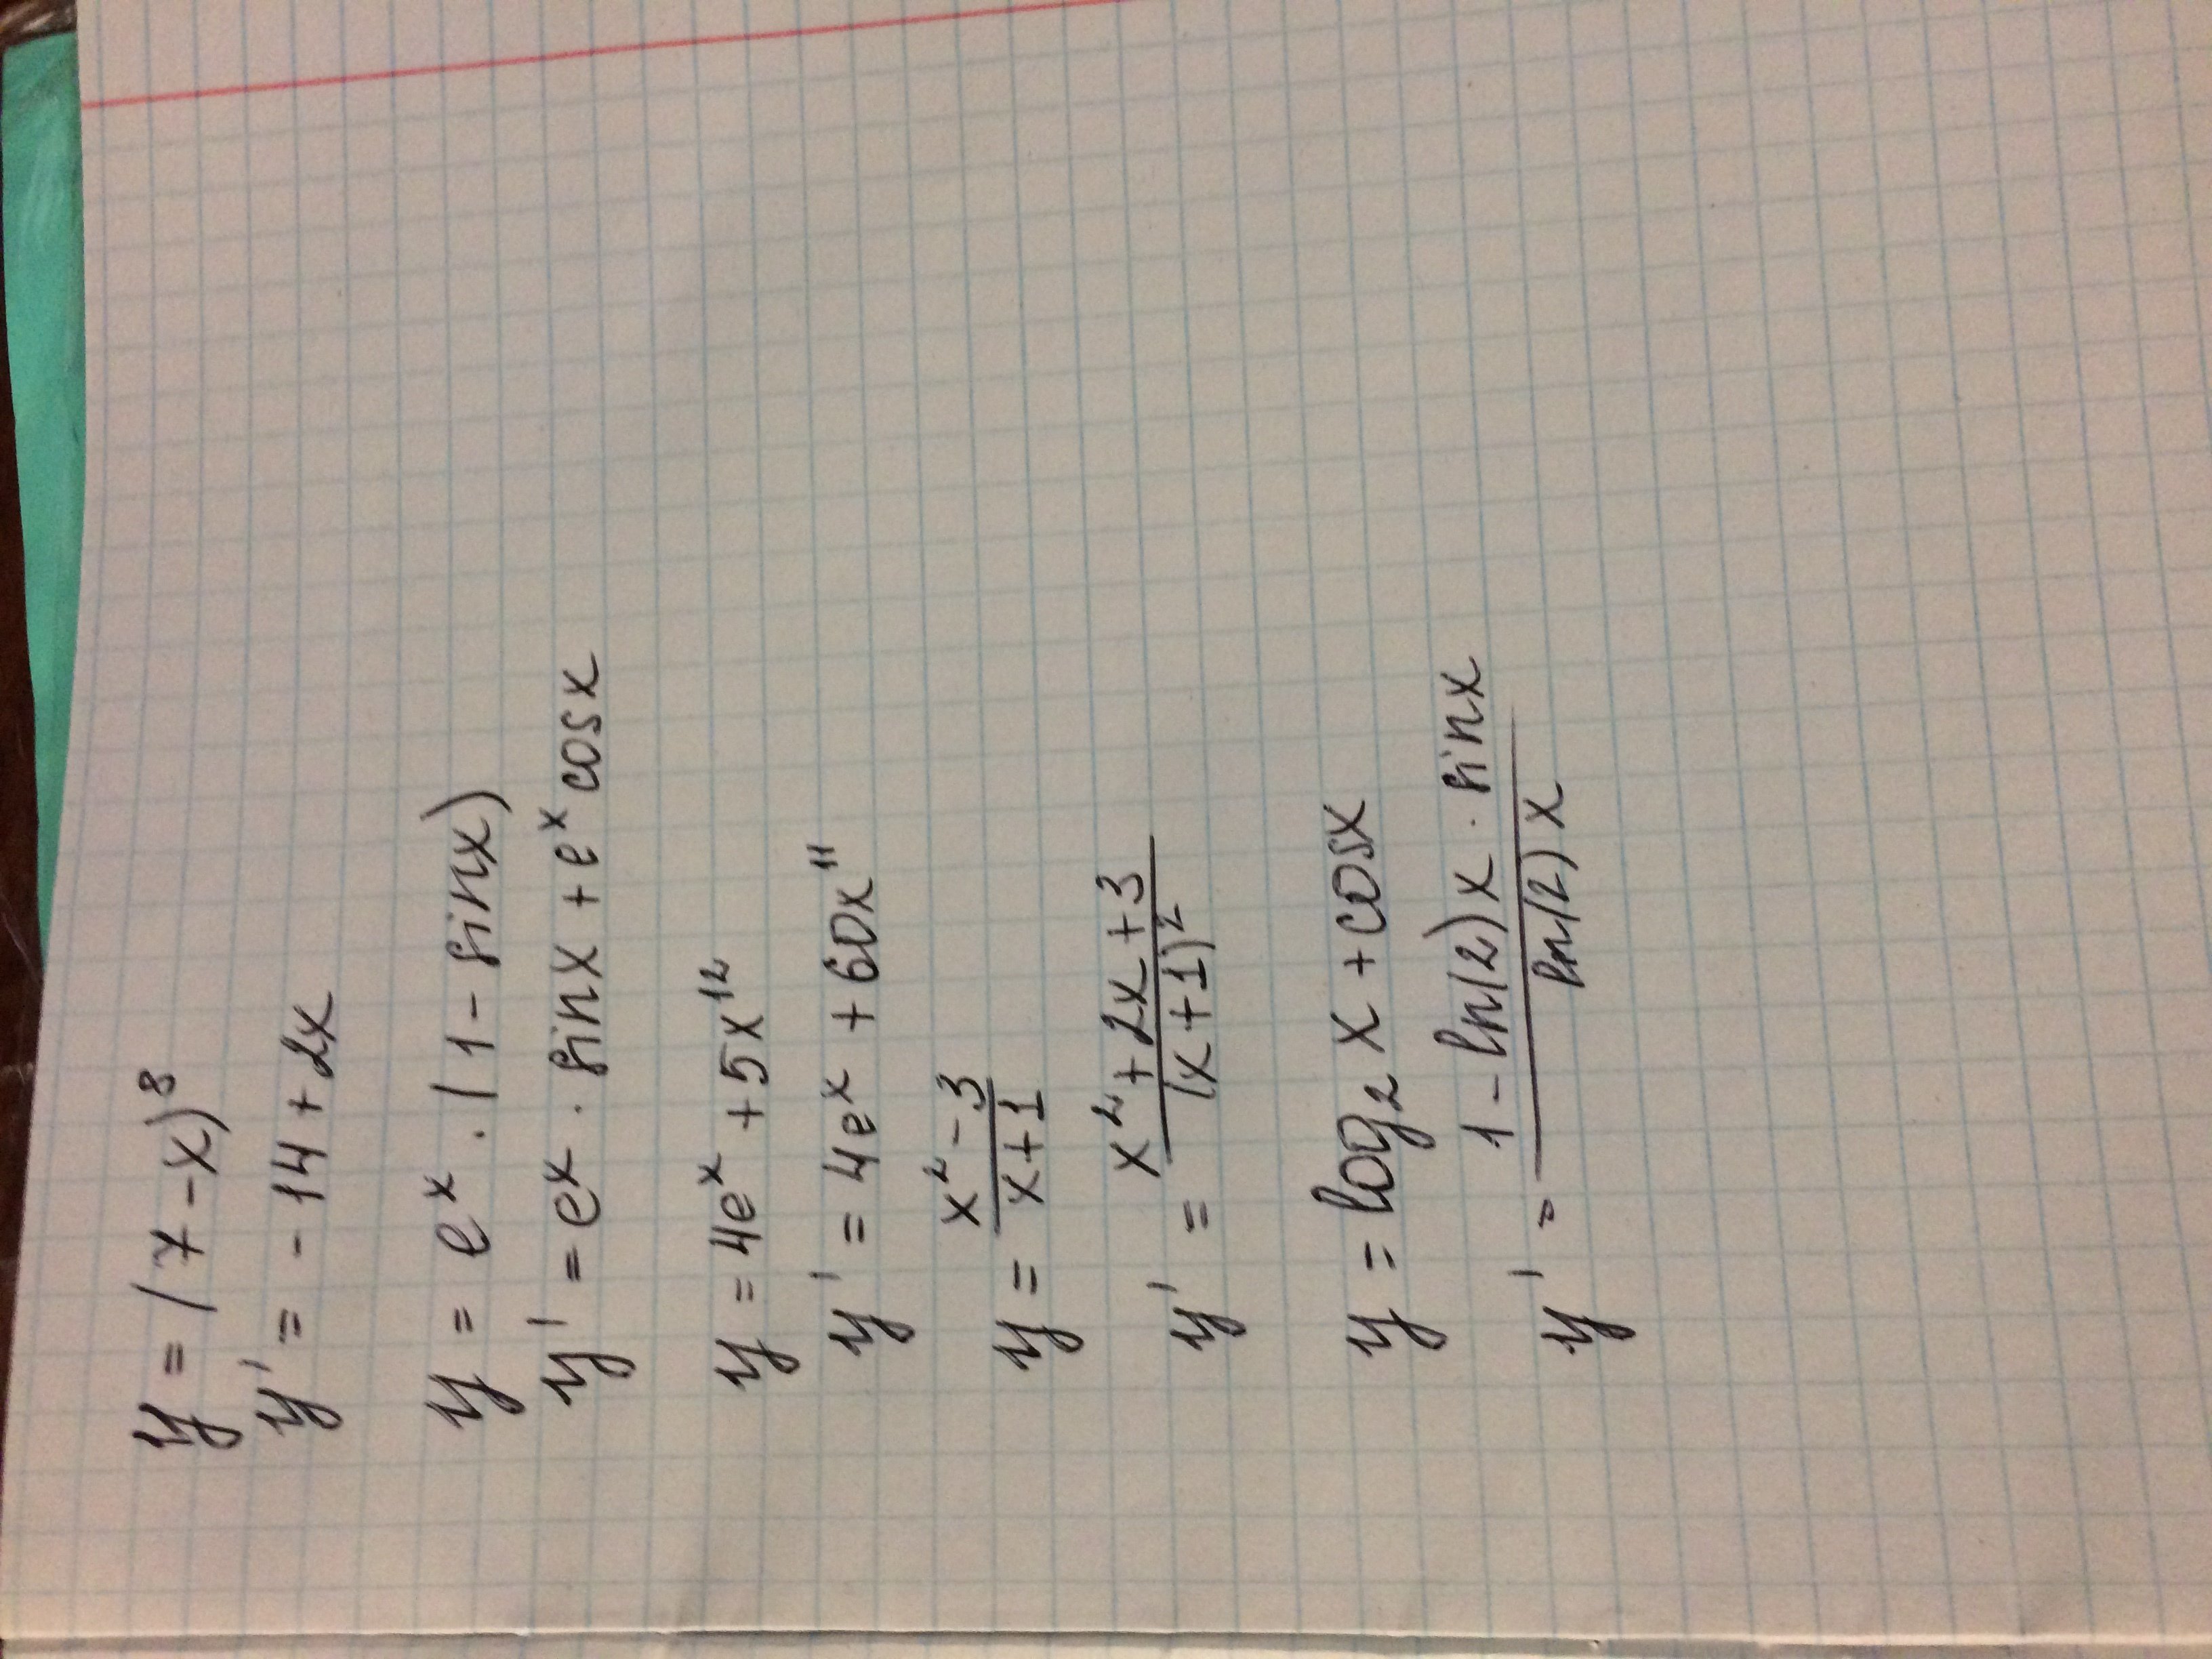 y = (7 - x)⁸
y' = - 14 + 2x
y = eˣ · (1 - sin x)
y' = eˣ · sin x + eˣ cos x
y = 4eˣ + 5x¹²
y' = 4eˣ + 60x¹¹
y = (x² - 3)/(x + 1)
y' = (x² + 2x + 3)/(x + 1)²
y = log₂ x + cos x
y' = (1 - ln(2)x · sin x)/(ln(2)x)